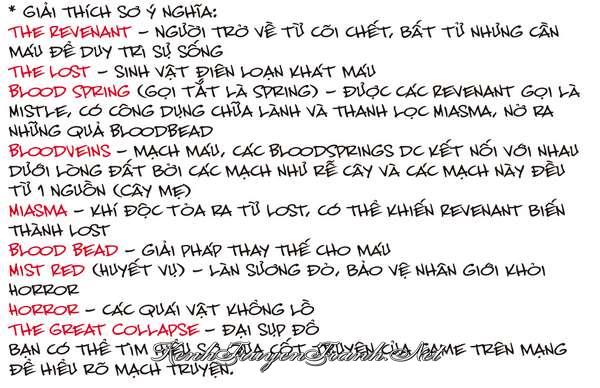 * GIẢI THÍCH SƠ Ý NGHĨA:
THE REVENANT – NGƯỜI TRỞ VỀ TỪ CÕI CHẾT, BẤT TỬ NHƯNG CẦN
MÁU ĐỂ DUY TRÌ SỰ SỐNG
THE LOST – SINH VẬT ĐIÊN LOẠN KHÁT MÁU
BLOOD SPRING (GỌI TẮT LÀ SPRING) – ĐƯỢC CÁC REVENANT GỌI LÀ
MISTLE, CÓ CÔNG DỤNG CHỮA LÀNH VÀ THANH LỌC MIASMA, NỞ RA
NHỮNG QUẢ BLOODBEAD
BLOODVEINS – MẠCH MÁU, CÁC BLOODSPRINGS DC KẾT NỐI VỚI NHAU
DƯỚI LÒNG ĐẤT BỞI CÁC MẠCH NHƯ RỄ CÂY VÀ CÁC MẠCH NÀY ĐỀU
TỪ 1 NGUỒN (CÂY MẸ)
MIASMA – KHÍ ĐỘC TỎA RA TỪ LOST, CÓ THỂ KHIẾN REVENANT BIẾN
THÀNH LOST
BLOOD BEAD – GIẢI PHÁP THAY THẾ CHO MÁU
MIST RED (HUYẾT VỤ) – LÀN SƯƠNG ĐỎ, BẢO VỆ NHÂN GIỚI KHỎI
HORROR
HORROR – CÁC QUÁI VẬT KHỔNG LỒ
THE GREAT COLLAPSE – ĐẠI SỤP ĐỔ
BẠN CÓ THỂ TÌM CỐT TRUYỆN CỦA GAME TRÊN MẠNG
ĐỂ HIỂU RÕ MẠCH TRUYỆN.
KenhTruyenTranh.Net